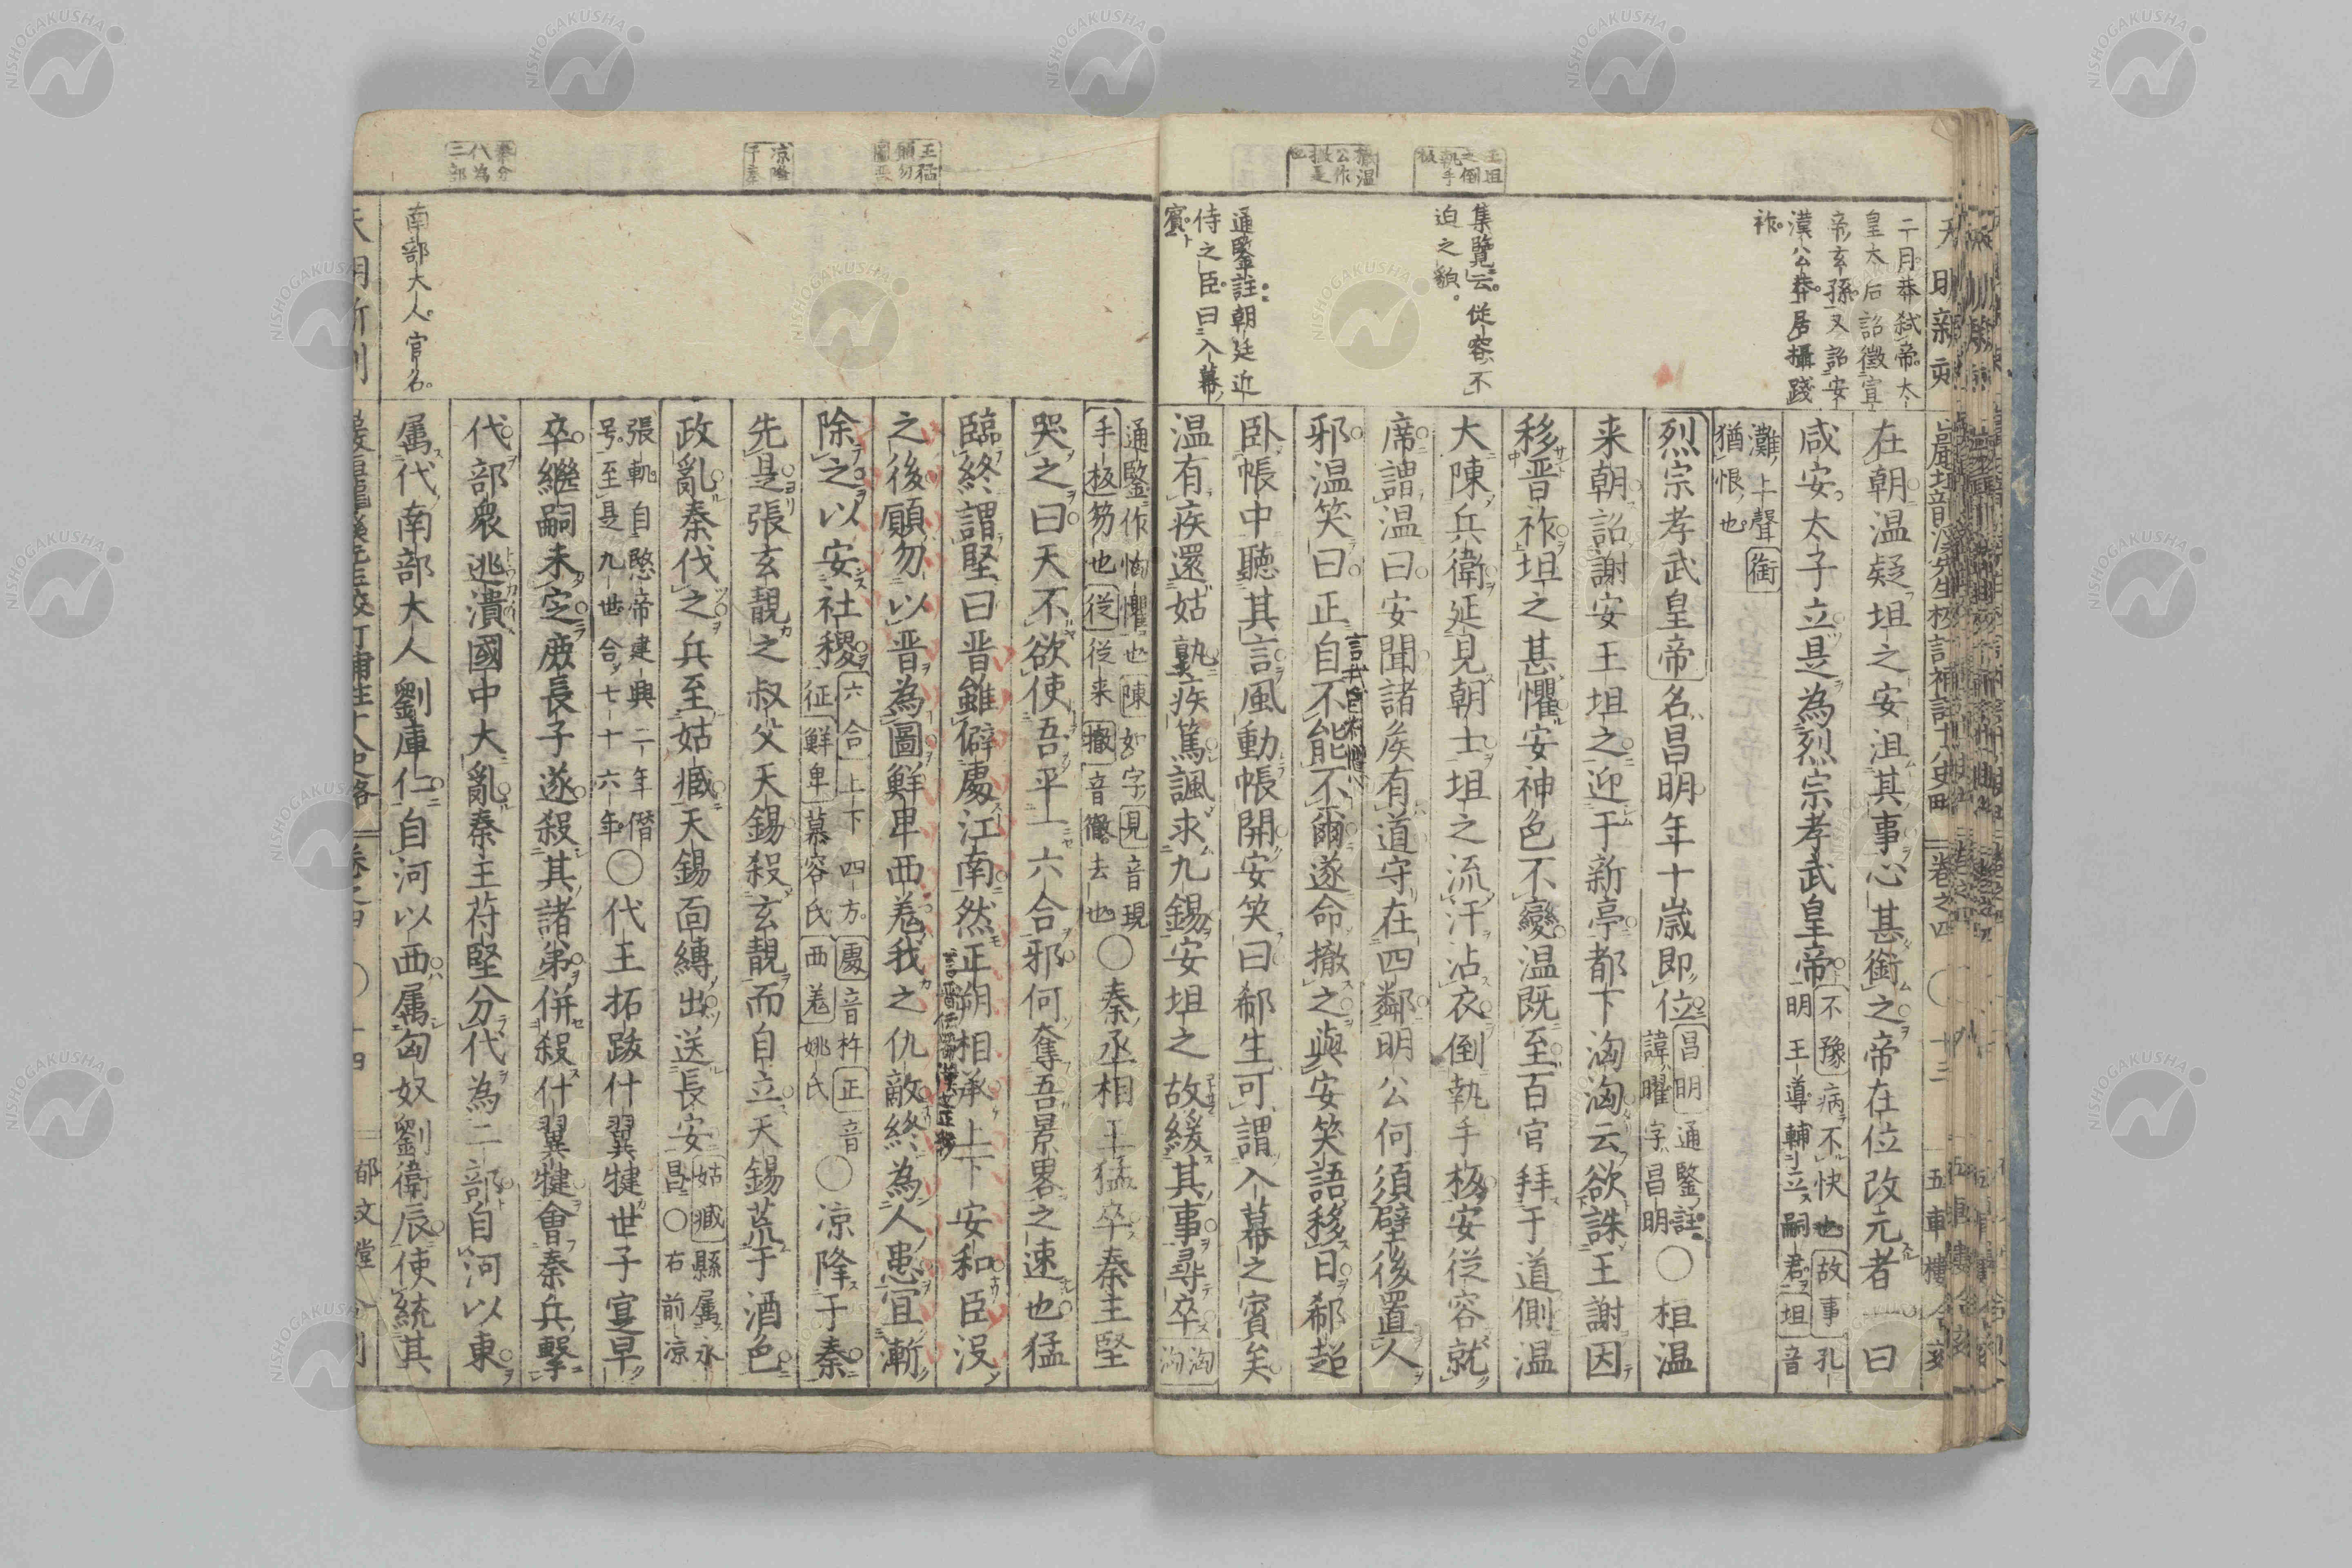 二月莽弑帝太
皇太后詔徵宣
帝玄孫又詔安
漢公莽居攝踐
祚
集覽云從容不
迫之貌
通鑒註朝廷近
侍之臣曰入幕
賓
王坦
之倒
執手
板
在朝溫疑坦之安沮其事心甚銜之帝在位改元者一曰
咸安太子立是為烈宗孝武皇帝
不豫病不快也故事孔
明王導輔立嗣君坦音
灘上聲銜
猶恨也
烈宗孝武皇帝名昌明年十歲即位
昌明通鑒註
諱曜字昌明
○桓温
来朝詔謝安王坦之迎于新亭都下洶洶云欲誅王謝因
移晋祚坦之甚懼安神色不變温既至百官拜于道側温
大陳兵衛延見朝士坦之流汗沾衣倒執手板安從容就
席謂温曰安聞諸侯有道守在四鄰明公何須壁後置人
邪温笑曰正自不能不爾遂命撤之與安笑語移日郗超
卧帳中聽其言風動帳開安笑曰郗生可謂入幕之賓矣
温有疾還姑孰疾篤諷求九錫安坦之故緩其事尋卒
洶
洶
通鑒作恟懼也陳如字見音現
手板笏也從從来撤音徹去也
○秦丞相王猛卒秦主堅
哭之曰天不欲使吾平一六合邪何奪吾景畧之速也猛
臨終謂堅曰晋雖僻處江南然正朔相承上下安和臣没
之後願勿以晋為圖鮮卑西羗我之仇敵終為人患宜漸
除之以安社稷
六合上下四方處音杵正音
征鮮卑慕容氏西羗姚氏
○凉降于秦
先是張玄靚之叔父天錫殺玄靚而自立天錫荒于酒色
政亂秦伐之兵至姑臧天錫面縛出送長安
姑臧縣属永
昌○右前凉
張軌自愍帝建興二年僭
号至是九世合七十六年
○代王拓跋什翼犍世子寔早
卒繼嗣未定庶長子遂殺其諸弟併殺什翼犍會秦兵擊
代部衆逃潰國中大亂秦主苻堅分代為二部自河以東
属代南部大人劉庫仁自河以西属匈奴劉衛辰使統其
王猛
願勿
圖晋
凉降
于秦
秦分
代為
二部
南部大人官名